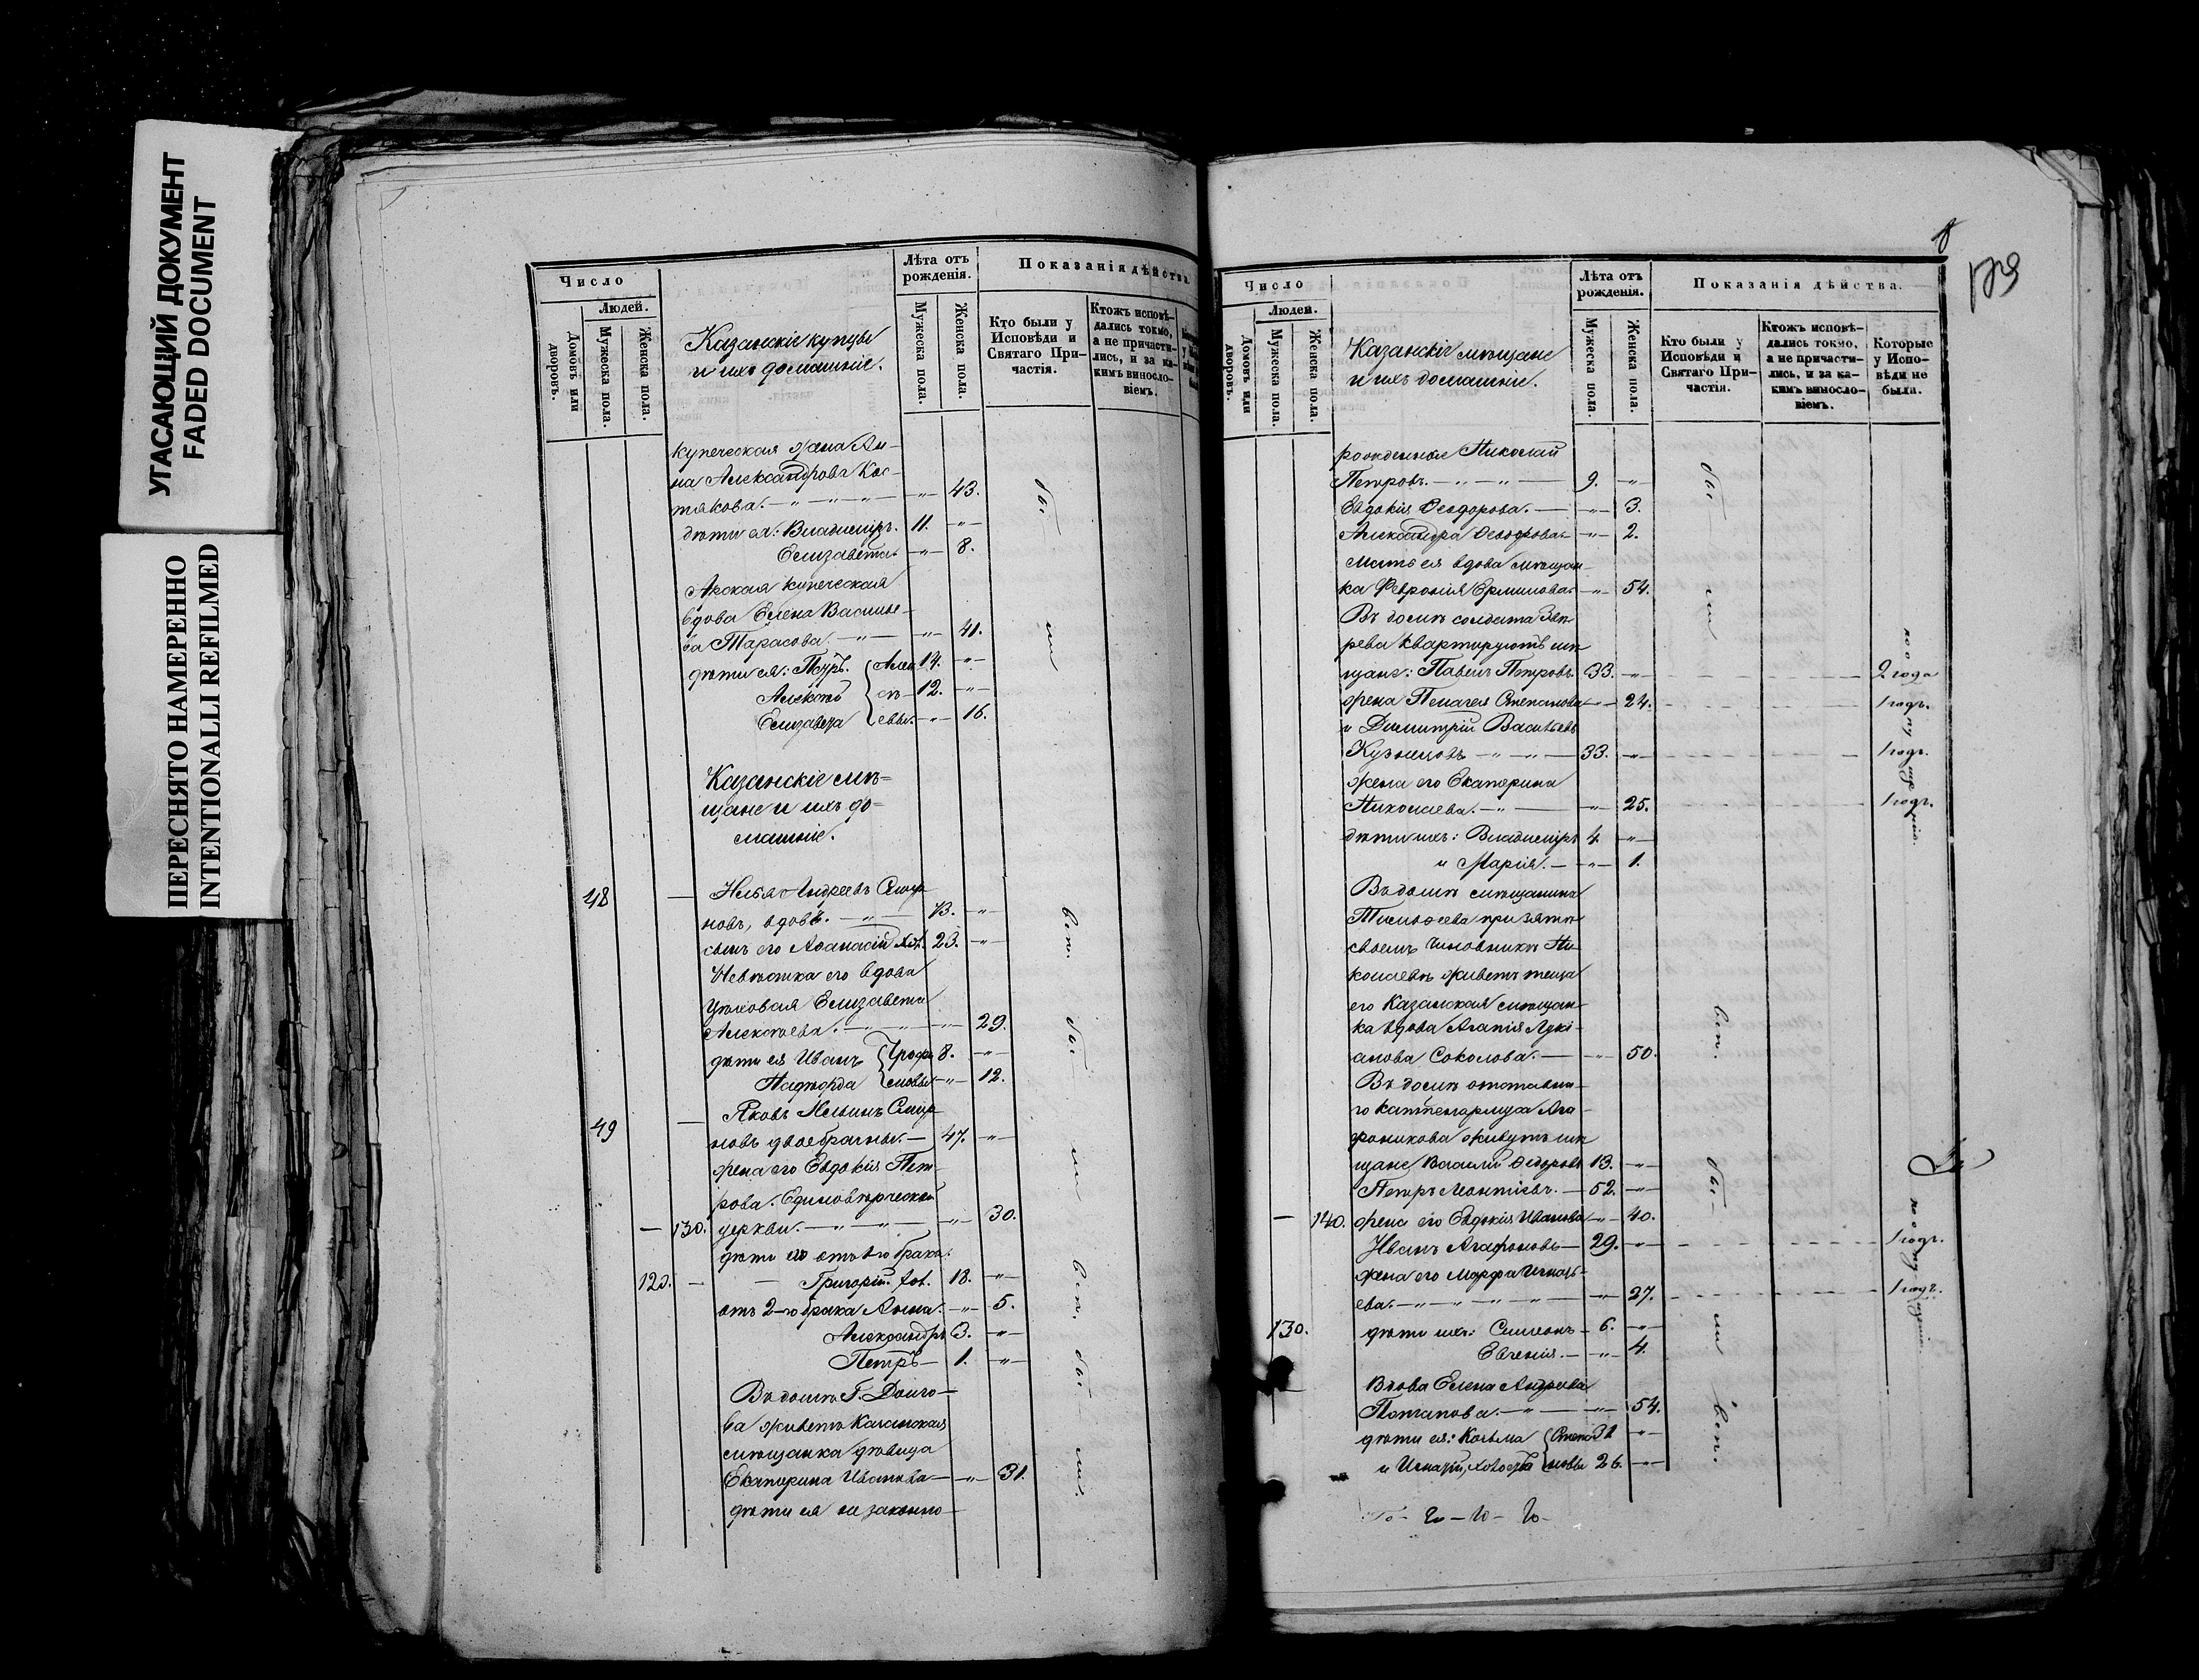 УГАСАЮЩИЙ ДОКУМЕНТ
FADED DOCUMENT
ПЕРЕСНЯТО НАМЕРЕННО
INTENTIONALLI REFILMED
Число
Людей.
Домовъ или дворовъ.
Мужеска пола.
Женска пола.
Казанскіе купцы
и ихъ домашніе.
Лѣта отъ рожденія.
Мужеска пола.
Женска пола.
Показанія дѣйства
Кто были у Исповѣди и Святаго Причастія.
Ктожъ исповѣдались токмо, а не причастились, и за какимъ винословіемъ.
купеческая жена Ан-
на Александрова Кос-
тякова. — „ — „ — „ — 43.
дѣти ея: Владиміръ. 11. — „ —
Елизавета — „ — 8.
Арская купеческая
вдова Елена Василье-
ва Тарасова. — „ — „ — 41.
дѣти ея: Петръ. 14. — „ —
Алексѣй 12. — „ —
Елизавета евы. — „ — 16.
Казанскіе мѣ-
щане и ихъ до-
машніе.
48 — Илья Андреевъ Смир
новъ, вдовъ. — „ — 73. — „ —
сынъ его Аѳанасій хол. 23. — „ —
Невѣстка его вдова
цеховая Елизавета
Алексѣева. — „ — 29.
дѣти ея Иванъ 8. — „ —
Надежда — „ — 12.
49 — Яковъ Ильинъ Смир
новъ двоебрачный. — 47. — „ —
жена его Евдокія Пет-
рова. Единовѣрческой
— 130. церкви. — „ — „ — 30.
дѣти его отъ 1-го брака:
120. — — Григорій. хол. 18. — „ —
отъ 2-го брака Анна. — „ — 5.
Александръ 3. — „ —
Петръ — 1. — „ —
Въ домѣ Г. Долго-
ва живетъ Казанская
мѣщанка дѣвица
Екатерина Иванова — „ — 31.
дѣти ея не законно-
бы-
ли
вст.
бы-
ли
вст.
бы-
ли.
Число
Людей.
Домовъ или дворовъ.
Мужеска пола.
Женска пола.
Казанскіе мѣщане
и ихъ домашніе.
Лѣта отъ рожденія.
Мужеска пола.
Женска пола.
Показанія дѣйства.
Кто были у Исповѣди и Святаго Причастія.
Ктожъ исповѣдались токмо, а не причастились, и за какимъ винословіемъ.
Которые у Исповѣди не были.
рожденные Николай
Петровъ. — „ — „ — 9. — „ —
Евдокія Ѳеодорова. — „ — 3.
Александра Ѳеодорова — „ — 2.
Мать ея вдова мѣщан-
ка Февронія Ермилова. — „ — 54.
Въ домѣ солдата Звѣ
рева квартируютъ мѣ
щане: Павелъ Петровъ. 33. — „ — 2 года
жена Пелагея Степанова — 24. 1 годъ.
и Димитрій Васильевъ
Кузнецовъ — „ — „ — 33. — „ — 1 годъ.
жена его Екатерина
Николаева. — „ — „ — 25. 1 годъ.
дѣти ихъ: Владиміръ 4. — „ —
и Марія. — „ — 1.
Въ домѣ мѣщанина
Тимоѳеева при зятѣ
своемъ чиновникѣ Ни-
колаевѣ живетъ теща
его Казанская мѣщан-
ка вдова Агапія Лукі-
анова Соколова. — „ — 50.
Въ домѣ отставна-
го Каптенармуса Ага
фоникова живутъ мѣ
щане Василій Ѳедоровъ 13. — „ —
Петръ Леонтіевъ. — 52. — „ —
— 140. жена его Евдокія Иванова — „ — 40.
Иванъ Агафоновъ — 29. — „ — 1 годъ.
жена его Марфа Игнать-
ева. — „ — „ — „ — 27. 1 годъ.
130. дѣти ихъ: Симеонъ — 6. — „ —
Евгенія. — „ — 4.
Вдова Елена Андреева
Потапова. — „ — „ — 54.
дѣти ея: Козьма — „ —
и Игнатій, 26. — „ —
бы-
ли
вст.
бы-
ли
вст.